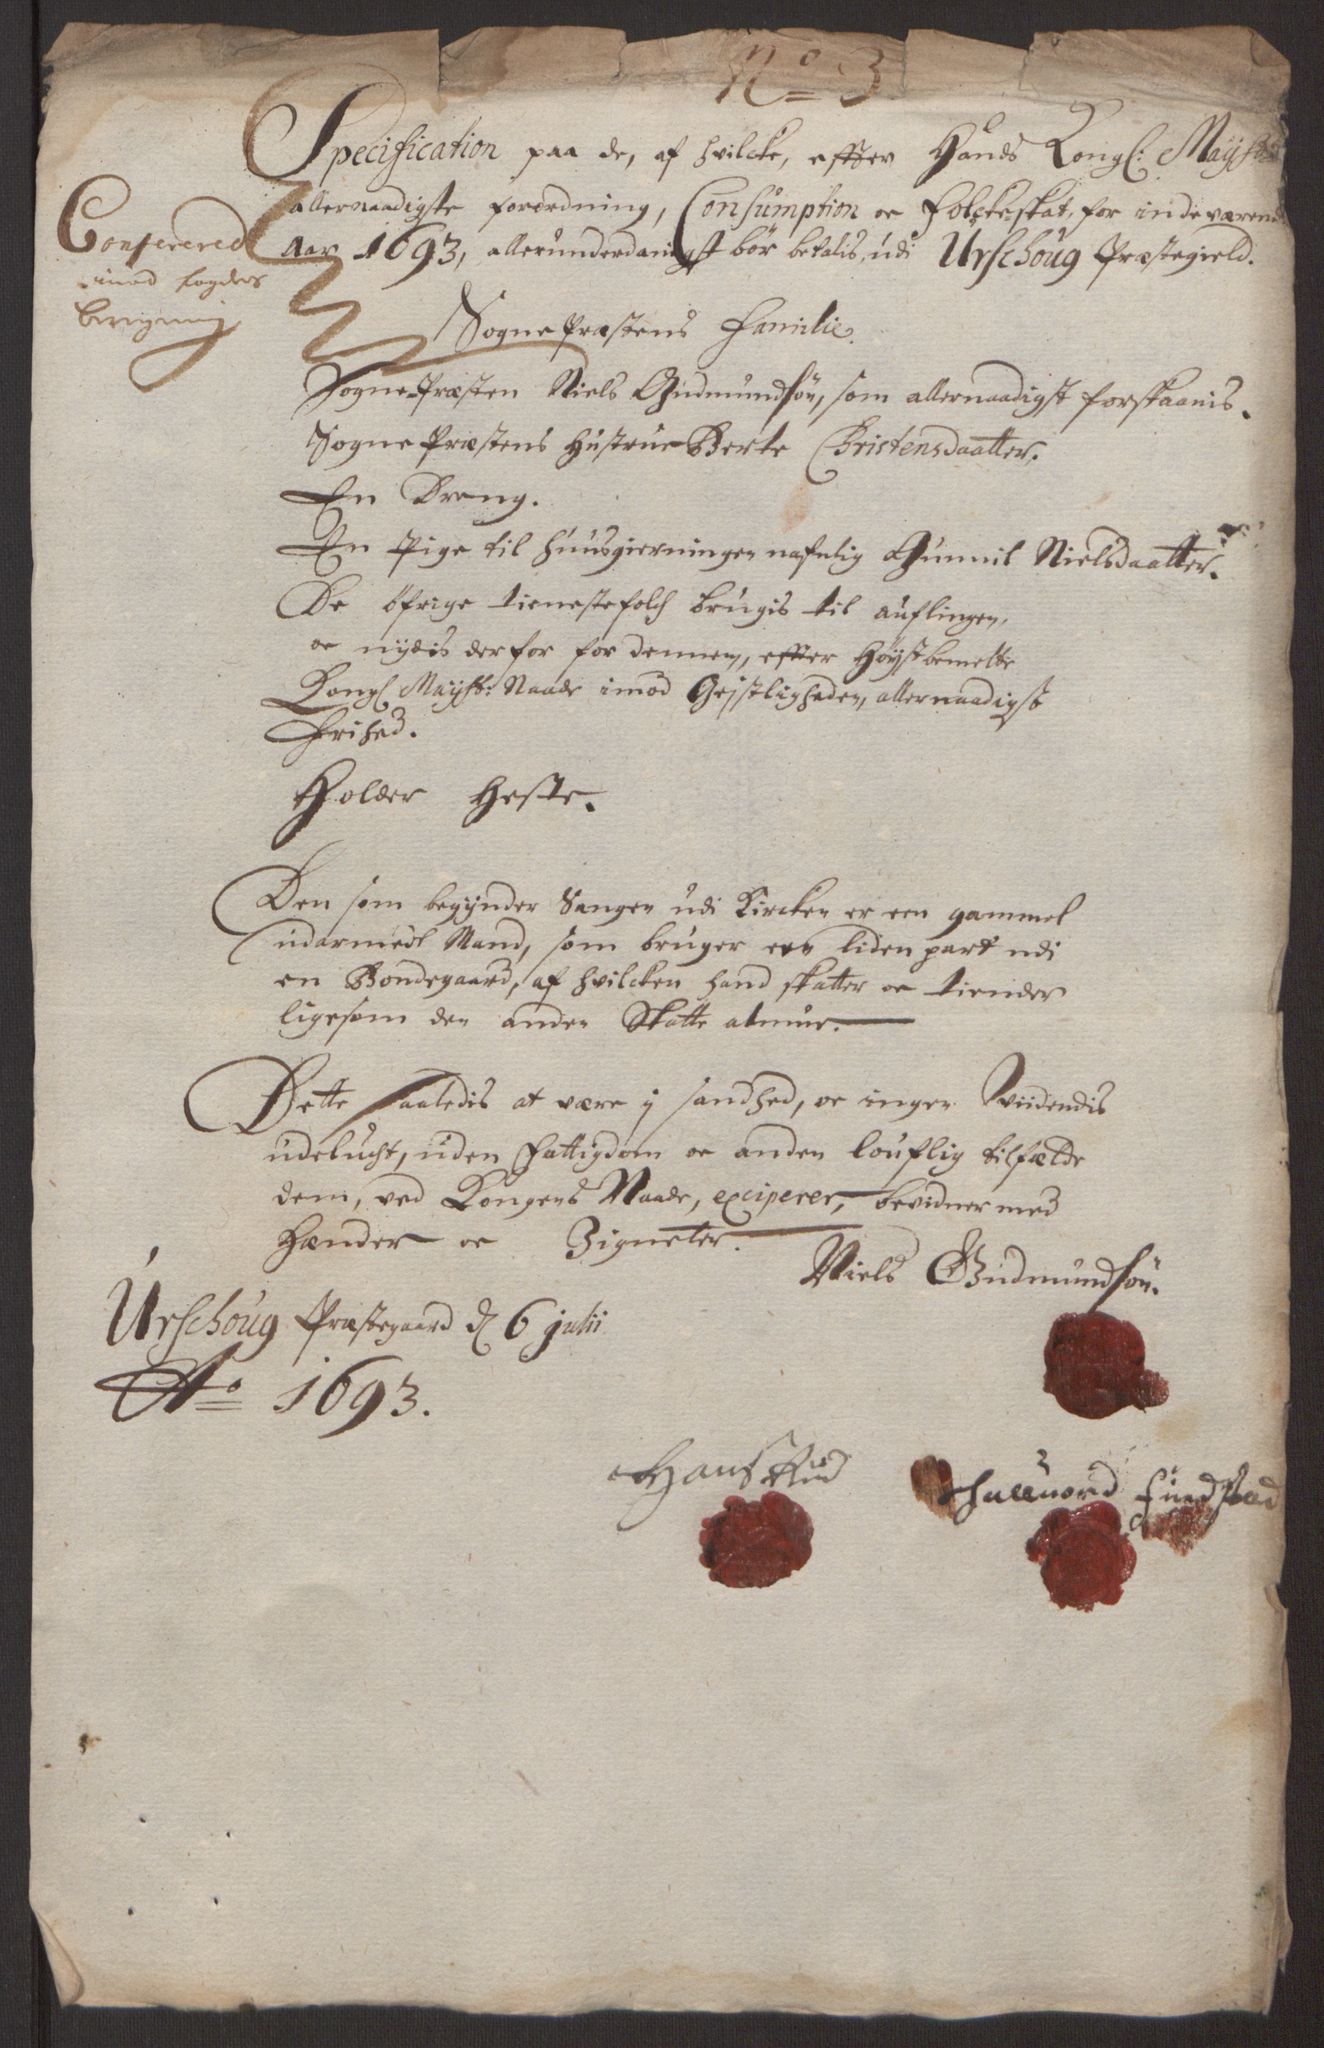 No 3
Specification paa de, af hvilcke, effter Hands Kongl: Mayst:
allernaadigste forordning, Consumption oc Folckeskat, for indeværende
Aar 1693, allerunderdanigst bör betalis, udi Urschoug Præstegield.
Conferered
imod fogdens
beregning
SognePræstens Familie.
Sogne-Præsten Niels Gudmundsön, som allernaadigst forskaanis.
SognePræstens Hustrue Berte Christensdaatter.
En Dreng.
En Pige til huusgierningen nafnlig Gunnil Nielsdaatter.
De öfrige tienestefolch brugis til auflingen,
oc nydis derfor for dennem, effter Höystbemelte
Kongl Mayst: Naade imod Gejstligheden, allernaadigst
Frihed.
Holder Heste.
Den som begynder Sangen udi Kircken er een gammel
udarmedt Mand, som bruger een liden part udi
en Bondegaard, af hvilcken hand skatter oc tiender
ligesom den anden Skatte almue.
Dette saaledis at være j sandhed, oc ingen Viidendis
udelucht, uden Fattigdom oc anden louflig tilfælde
dem, ved Kongens Naade, exciperer, bevidner med
Hænder oc Zigneter.
Niels Gudmundsön.
Urschoug Præstegaard d 6 julii
Ao 1693.
Hans Rud
Halluord Fundstad